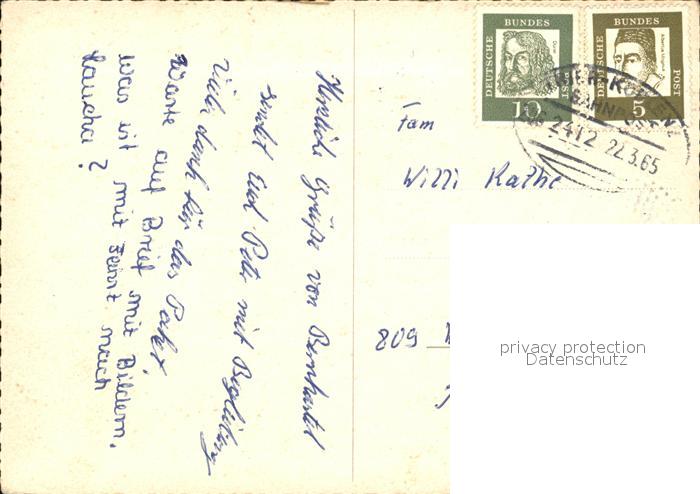 Herzliche Grüße von Bernkastel
sendet Euch Peter mit Begleitung
Viele dank für das Paket,
Warte auf Brief mit Bildern,
Was ist mit Fahrt nach
Laucha?
DEUTSCHE BUNDES POST
10
DEUTSCHE BUNDES POST
5
2412 22.3.65
Fam
Willi Kathe
809
privacy protection
Datenschutz